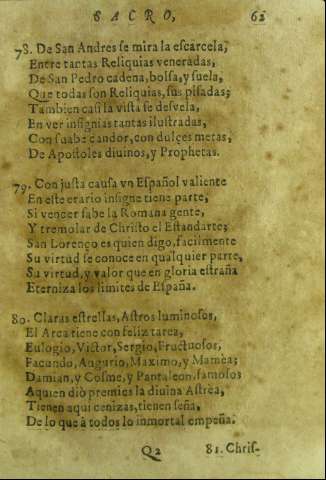 SACRO, 62
78. De San Andres se mira la escarcela,
Entre tantas Reliquias veneradas,
De San Pedro cadena, bolsa, y suela,
Que todas son Reliquias, sus pisadas;
Tambien casi la vista se desvela,
En ver insignias tantas ilustradas,
Con suabe candor, con dulçes metas,
De Apostoles diuinos, y Prophetas.
79. Con justa causa vn Español valiente
En este erario insigne tiene parte,
Si vencer sabe la Romana gente,
Y tremolar de Christo el Estandarte;
San Lorenço es quien digo, facilmente
Su virtud se conoce en qualquier parte,
Su virtud, y valor que en gloria estraña
Eterniza los limites de España.
80. Claras estrellas, Astros luminosos,
El Arca tiene con feliz tarea,
Eulogio, Victor, Sergio, Fructuosos,
Facundo, Augurio, Maximo, y Mamea;
Damian, y Cosme, y Pantaleon famosos
A quien diò premios la diuina Astrea,
Tienen aqui cenizas, tienen seña,
De lo que à todos lo inmortal empeña.
Q2 81. Chris-